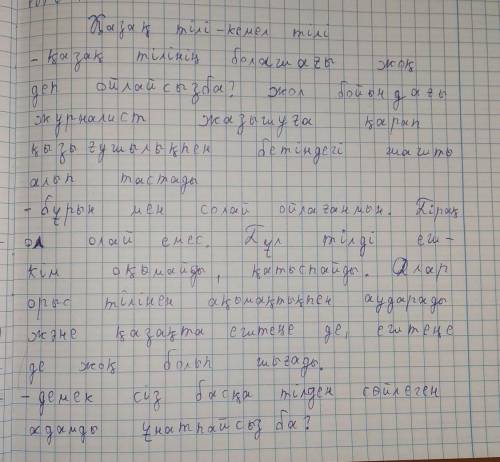 Қазақ тілі-кемел тілі
- қазақ тілінің болашағы жоқ
деп ойлайсызба? жол бойындағы
журналист жазышуға қарап
қызығушылықпен бетіндегі шашты
алып тастады
- бұрын мен солай ойлағанмын. Бірақ
ол олай емес. Бұл тілді еш-
кім оқымайды, қатыспайды. Олар
орыс тілінен ақымақтықпен аударады
және қазақта ештеңе де, ештеңе
де жоқ болып шығады.
- демек сіз басқа тілден сөйлеген
адамды ұнатпайсыз ба?